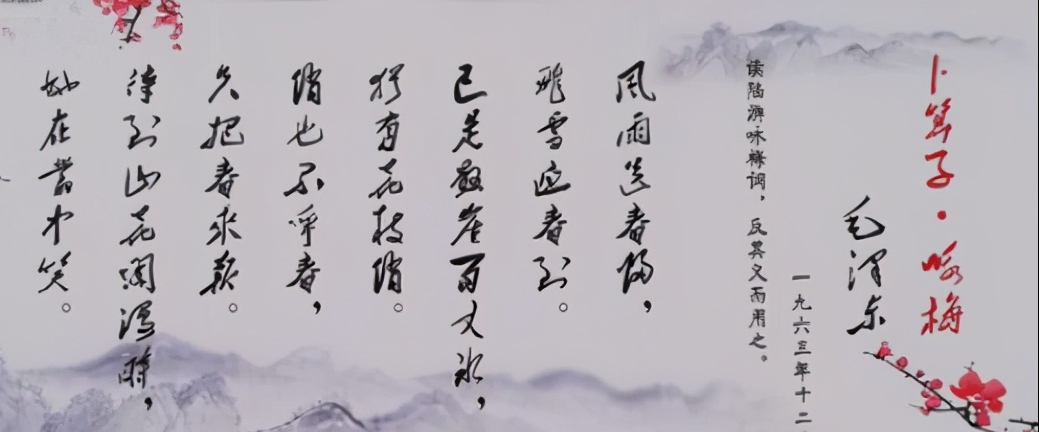 卜算子·咏梅
毛泽东
一九六三年十二
读陆游咏梅词，反其义而用之。
风雨送春归，
飞雪迎春到。
已是悬崖百丈冰，
犹有花枝俏。
俏也不争春，
只把春来报。
待到山花烂漫时，
她在丛中笑。